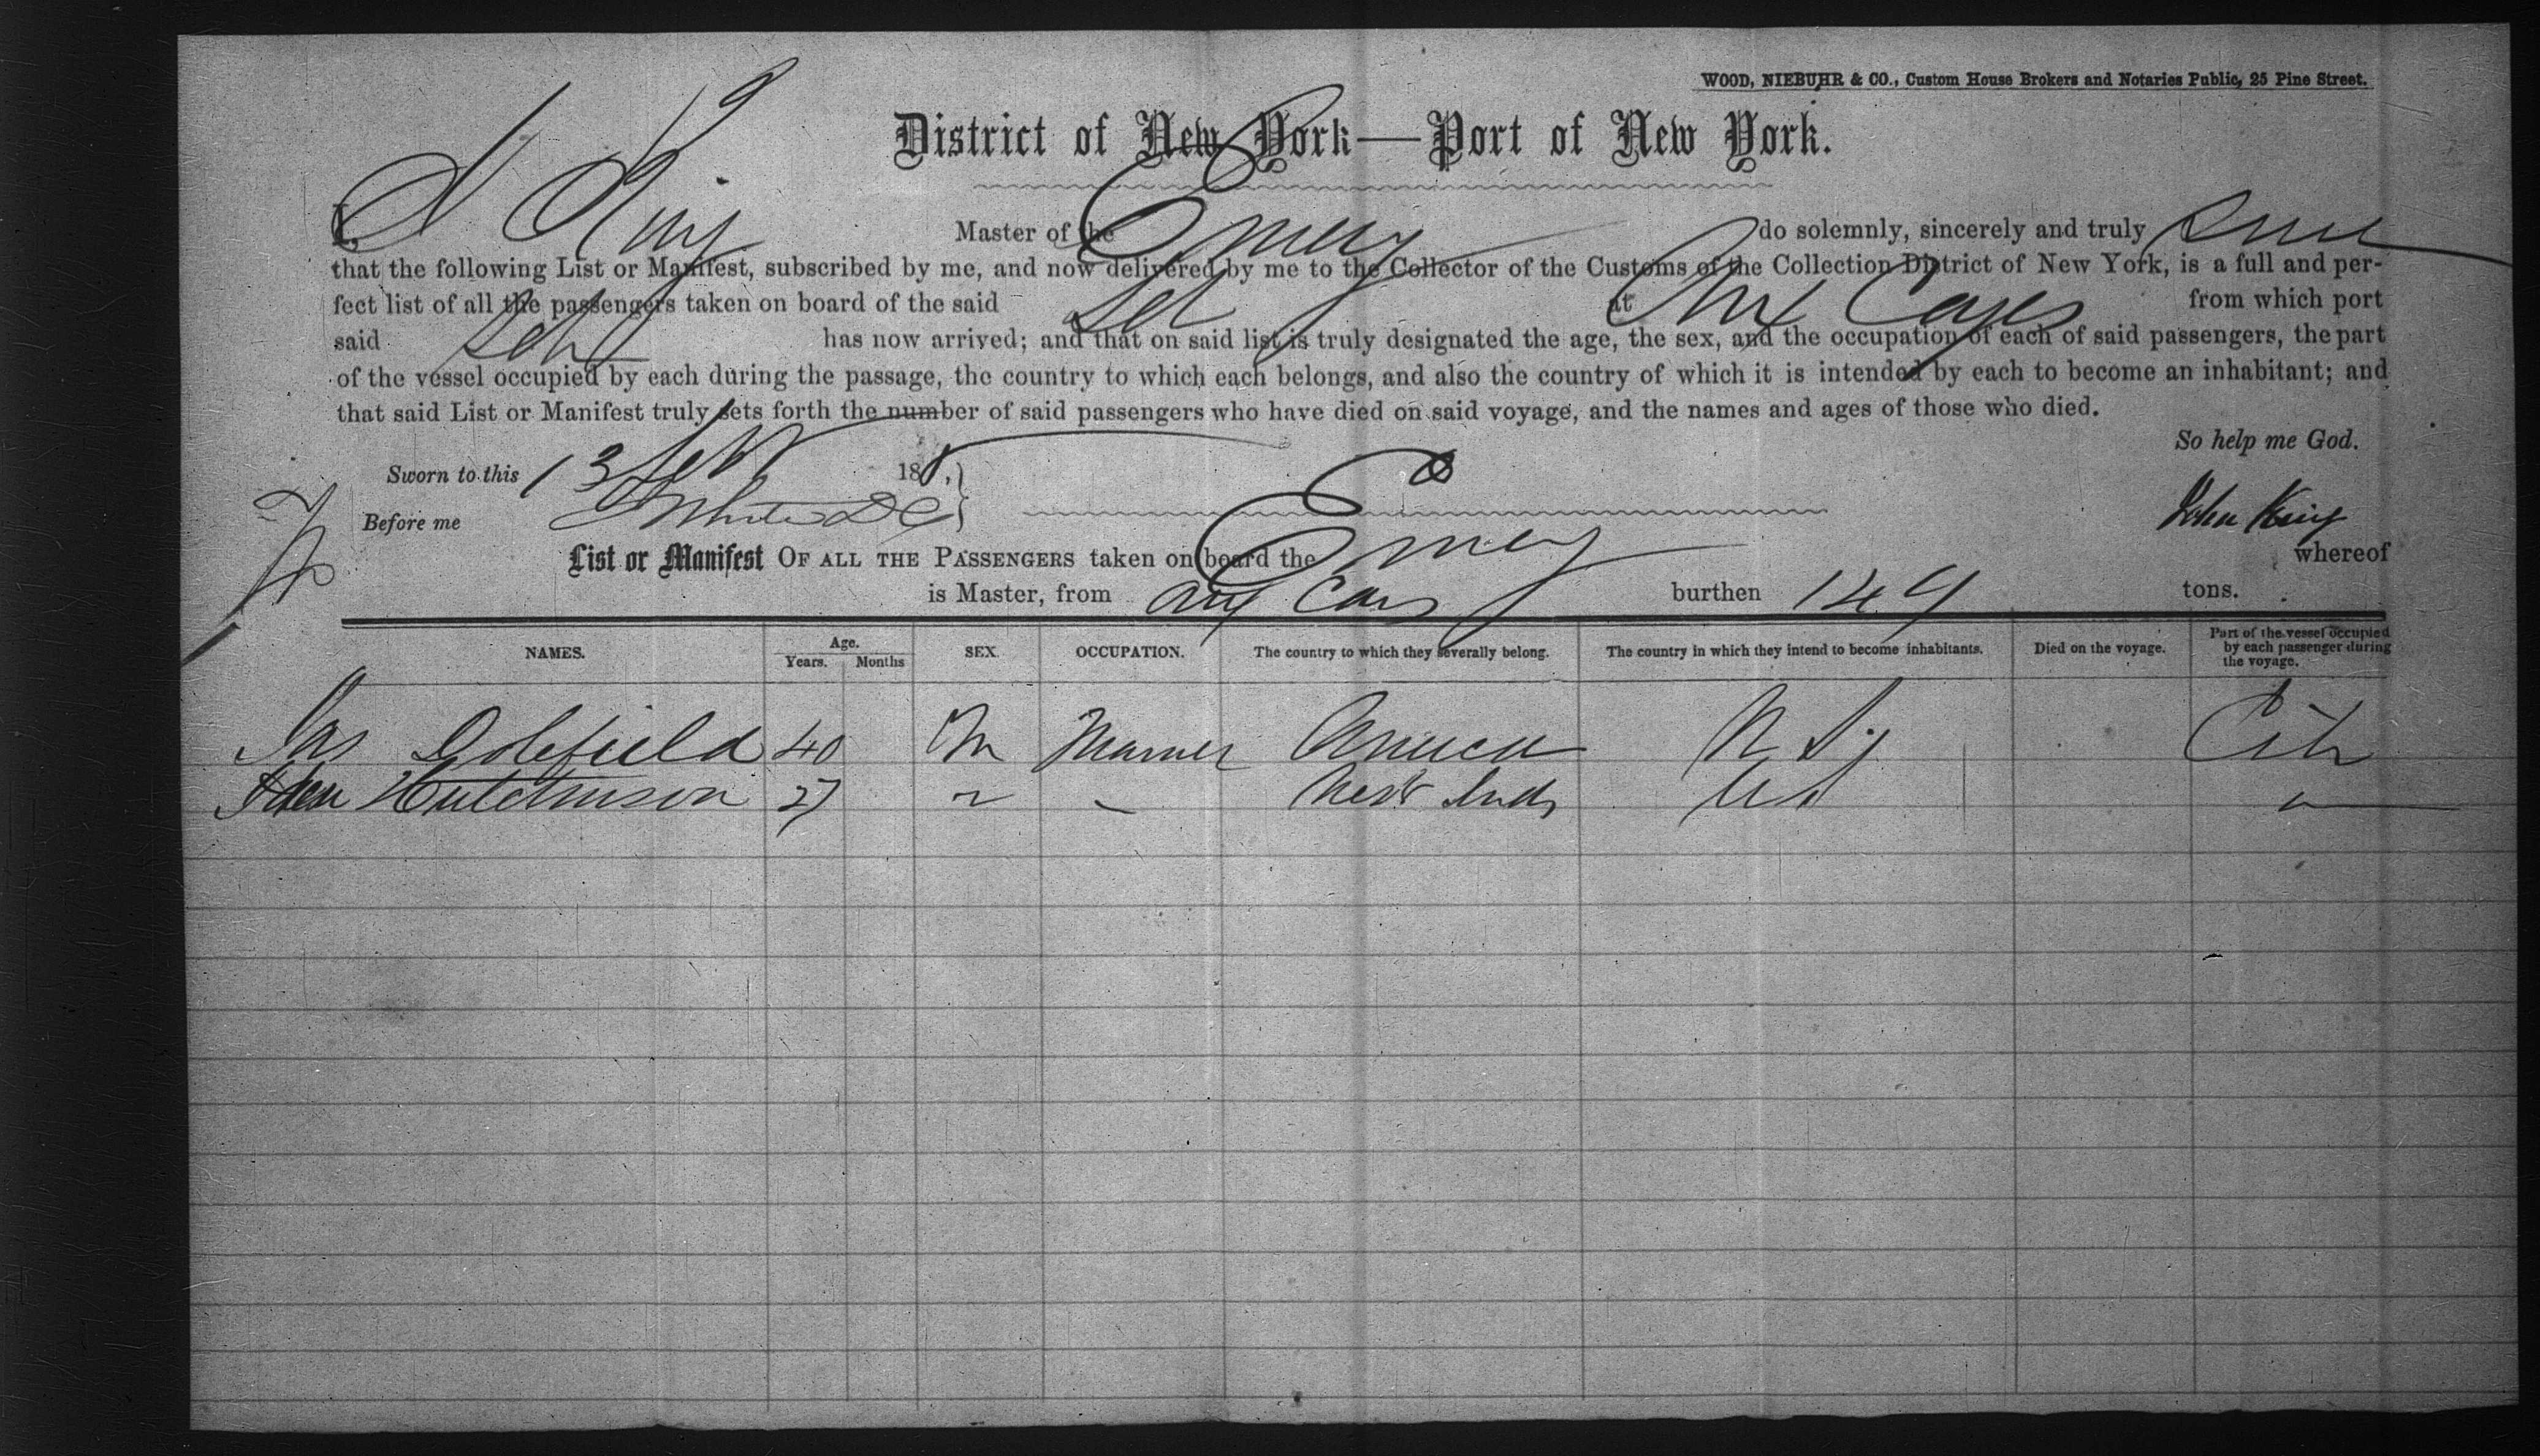 WOOD, NIEBUHR & CO., Custom House Brokers and Notaries Public, 25 Pine Street.
District of New York—Port of New York.
I, J King Master of the Emery do solemnly, sincerely and truly
that the following List or Manifest, subscribed by me, and now delivered by me to the Collector of the Customs of the Collection District of New York, is a full and per-
fect list of all the passengers taken on board of the said Sch at Aux Cayes from which port
said Schr has now arrived; and that on said list is truly designated the age, the sex, and the occupation of each of said passengers, the part
of the vessel occupied by each during the passage, the country to which each belongs, and also the country of which it is intended by each to become an inhabitant; and
that said List or Manifest truly sets forth the number of said passengers who have died on said voyage, and the names and ages of those who died.
So help me God.
Sworn to this 13 188 .}
Before me White D C John King
List or Manifest OF ALL THE PASSENGERS taken on board the Emery whereof
is Master, from aux Cays burthen 149 tons.
NAMES. Age. Years. Months SEX. OCCUPATION. The country to which they severally belong. The country in which they intend to become inhabitants. Died on the voyage. Part of the vessel occupied by each passenger during the voyage.
Jas Dolefield 40 M Mariner America N Y Cab
Hutchinson 27 West Inds U S